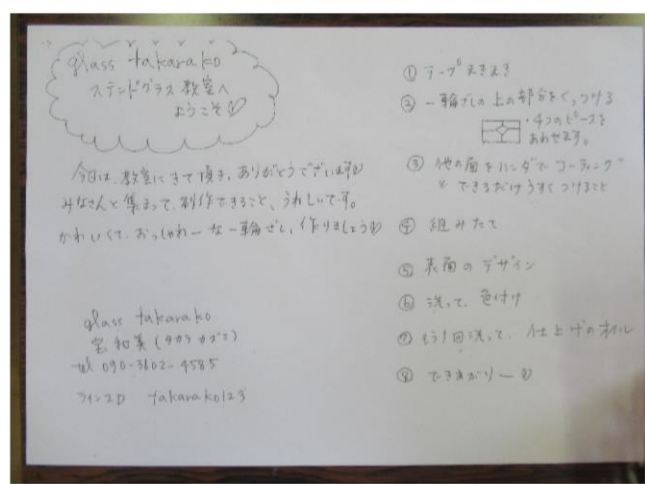 glass takarako
ステンドグラス教室へ
ようこそ♡
今日は、教室にきて頂き、ありがとうございます♡
みなさんと集まって、制作できること、うれしいです。
かわいくて、おっしゃれーな一輪ざし、作りましょう♡
glass takarako
宝和美(タカラカズミ)
tel 090-3602-4585
ラインID takarako123
① テープまきまき
② 一輪ざしの上の部分をくっつける
・4つのピースを
あわせます。
③ 他の面をハンダでコーティング
できるだけうすくつけること
④ 組みたて
⑤ 表面のデザイン
⑥ 洗って、色付け
⑦ もう1回洗って、仕上げのオイル
⑧ できあがりー♡